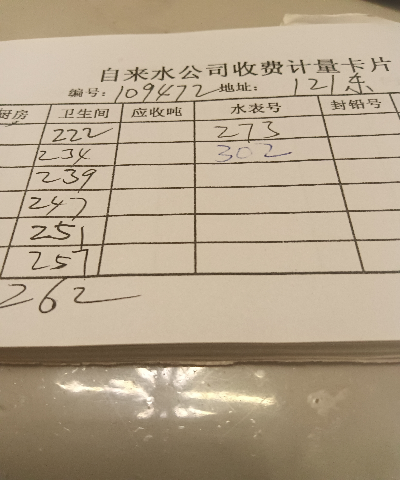 自来水公司收费计量卡片
编号：109472 地址： 121东
厨房 卫生间 应收吨 水表号 封铅号
222 273
234 302
239
247
251
257
262